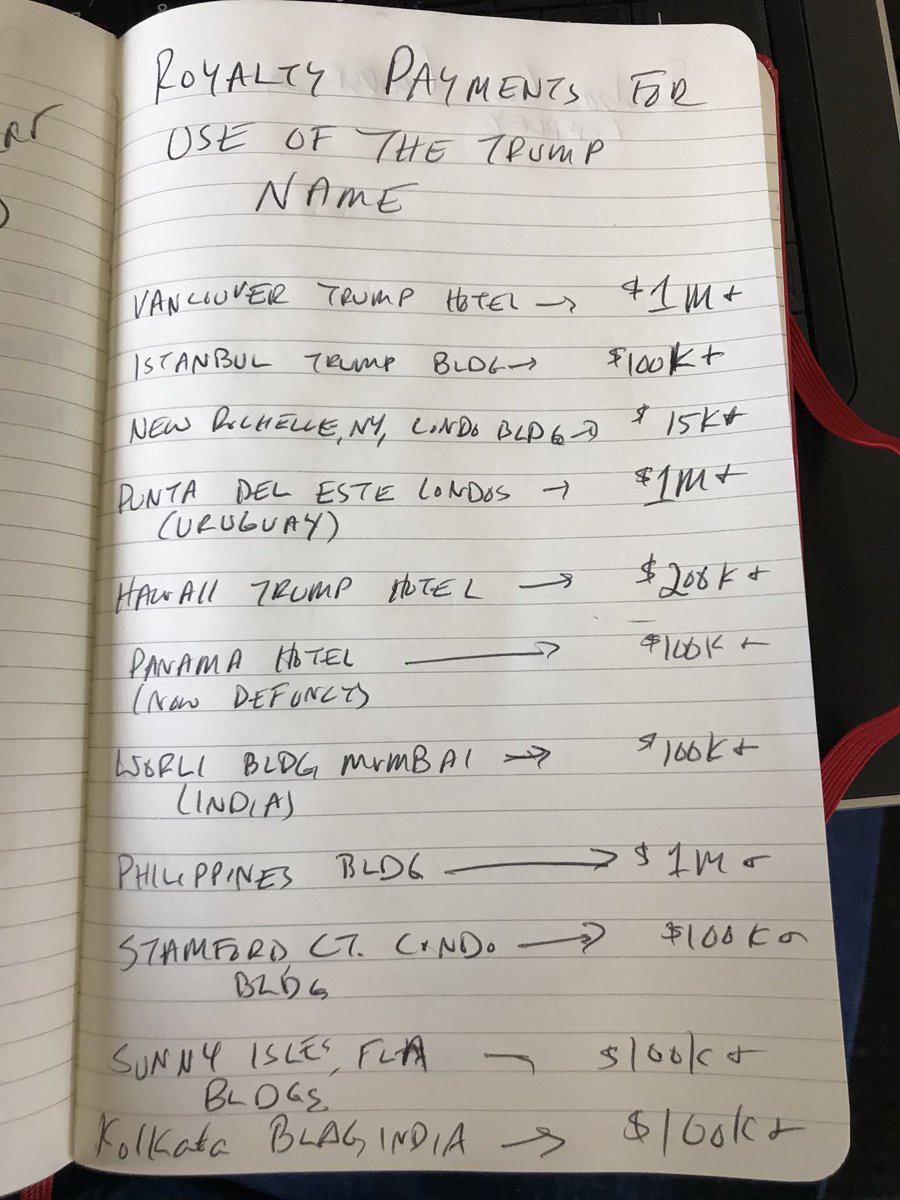 ROYALTY PAYMENTS FOR
USE OF THE TRUMP
NAME
VANCOUVER TRUMP HOTEL → $1M+
ISTANBUL TRUMP BLDG → $100K+
NEW ROCHELLE, NY, CONDO BLDG → $15K+
PUNTA DEL ESTE CONDOS → $1M+
(URUGUAY)
HAWAII TRUMP HOTEL → $200K+
PANAMA HOTEL → $100K+
(NOW DEFUNCT)
WORLI BLDG MUMBAI → $100K+
(INDIA)
PHILIPPINES BLDG → $1M+
STAMFORD CT. CONDO → $100K+
BLDG
SUNNY ISLES, FLA → $100K+
BLDGS
Kolkata BLDG INDIA → $100K+